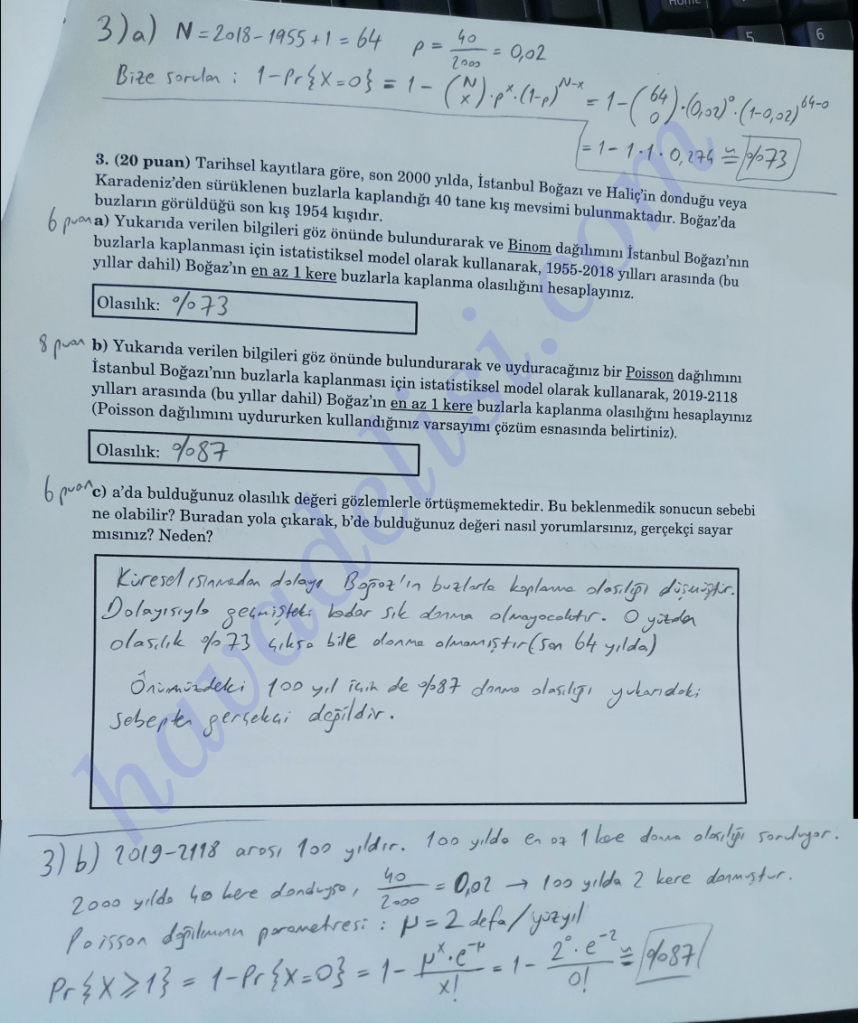 Home
5
6
3)a) N = 2018 - 1955 + 1 = 64 p = 40/2000 = 0,02
Bize sorulan : 1 - Pr{X=0} = 1 - (N x) · p^x · (1-p)^N-x = 1 - (64 0) · (0,02)^0 · (1-0,02)^64-0
= 1 - 1 · 1 · 0,274 ≅ %73
3. (20 puan) Tarihsel kayıtlara göre, son 2000 yılda, İstanbul Boğazı ve Haliç'in donduğu veya
Karadeniz'den sürüklenen buzlarla kaplandığı 40 tane kış mevsimi bulunmaktadır. Boğaz'da
buzların görüldüğü son kış 1954 kışıdır.
6 puan a) Yukarıda verilen bilgileri göz önünde bulundurarak ve Binom dağılımını İstanbul Boğazı'nın
buzlarla kaplanması için istatistiksel model olarak kullanarak, 1955-2018 yılları arasında (bu
yıllar dahil) Boğaz'ın en az 1 kere buzlarla kaplanma olasılığını hesaplayınız.
Olasılık: %73
8 puan b) Yukarıda verilen bilgileri göz önünde bulundurarak ve uyduracağınız bir Poisson dağılımını
İstanbul Boğazı'nın buzlarla kaplanması için istatistiksel model olarak kullanarak, 2019-2118
yılları arasında (bu yıllar dahil) Boğaz'ın en az 1 kere buzlarla kaplanma olasılığını hesaplayınız
(Poisson dağılımını uydururken kullandığınız varsayımı çözüm esnasında belirtiniz).
Olasılık: %87
6 puan c) a'da bulduğunuz olasılık değeri gözlemlerle örtüşmemektedir. Bu beklenmedik sonucun sebebi
ne olabilir? Buradan yola çıkarak, b'de bulduğunuz değeri nasıl yorumlarsınız, gerçekçi sayar
mısınız? Neden?
Küresel ısınmadan dolayı Boğaz'ın buzlarla kaplanma olasılığı düşmüştür.
Dolayısıyla geçmişteki kadar sık donma olmayacaktır. O yüzden
olasılık %73 çıksa bile donma olmamıştır (son 64 yılda)
Önümüzdeki 100 yıl için de %87 donma olasılığı yukarıdaki
sebepten gerçekçi değildir.
havadelisi.com
3) b) 2019-2118 arası 100 yıldır. 100 yılda en az 1 kere donma olasılığı soruluyor.
2000 yılda 40 kere donduysa, 40/2000 = 0,02 → 100 yılda 2 kere donmuştur.
Poisson dağılımının parametresi : μ = 2 defa/yüzyıl
Pr{X ≥ 1} = 1 - Pr{X=0} = 1 - μ^x · e^-μ / x! = 1 - 2^0 · e^-2 / 0! ≅ %87